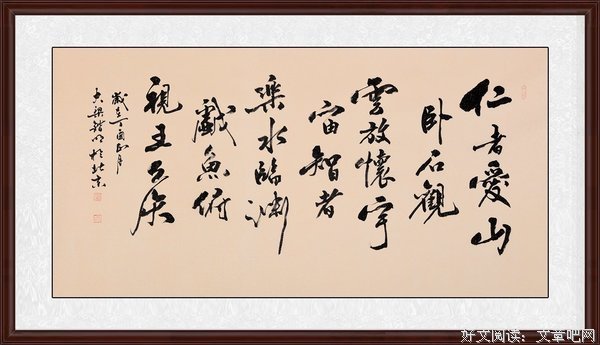 仁者愛山
卧石觀
雲放懷宇
宙智者
樂水臨淵
戲魚俯
視王公
歲在丁酉月
梁於北京
好文阅读：文章吧网